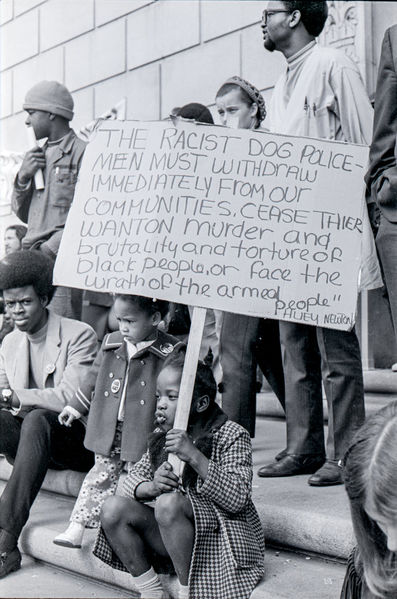 "THE RACIST DOG POLICE-
MEN MUST WITHDRAW
IMMEDIATELY FROM OUR
COMMUNITIES, CEASE THIER
WANTON MURDER and
brutality and torture of
black people, or face the
wrath of the armed
people"
HUEY NEWTON